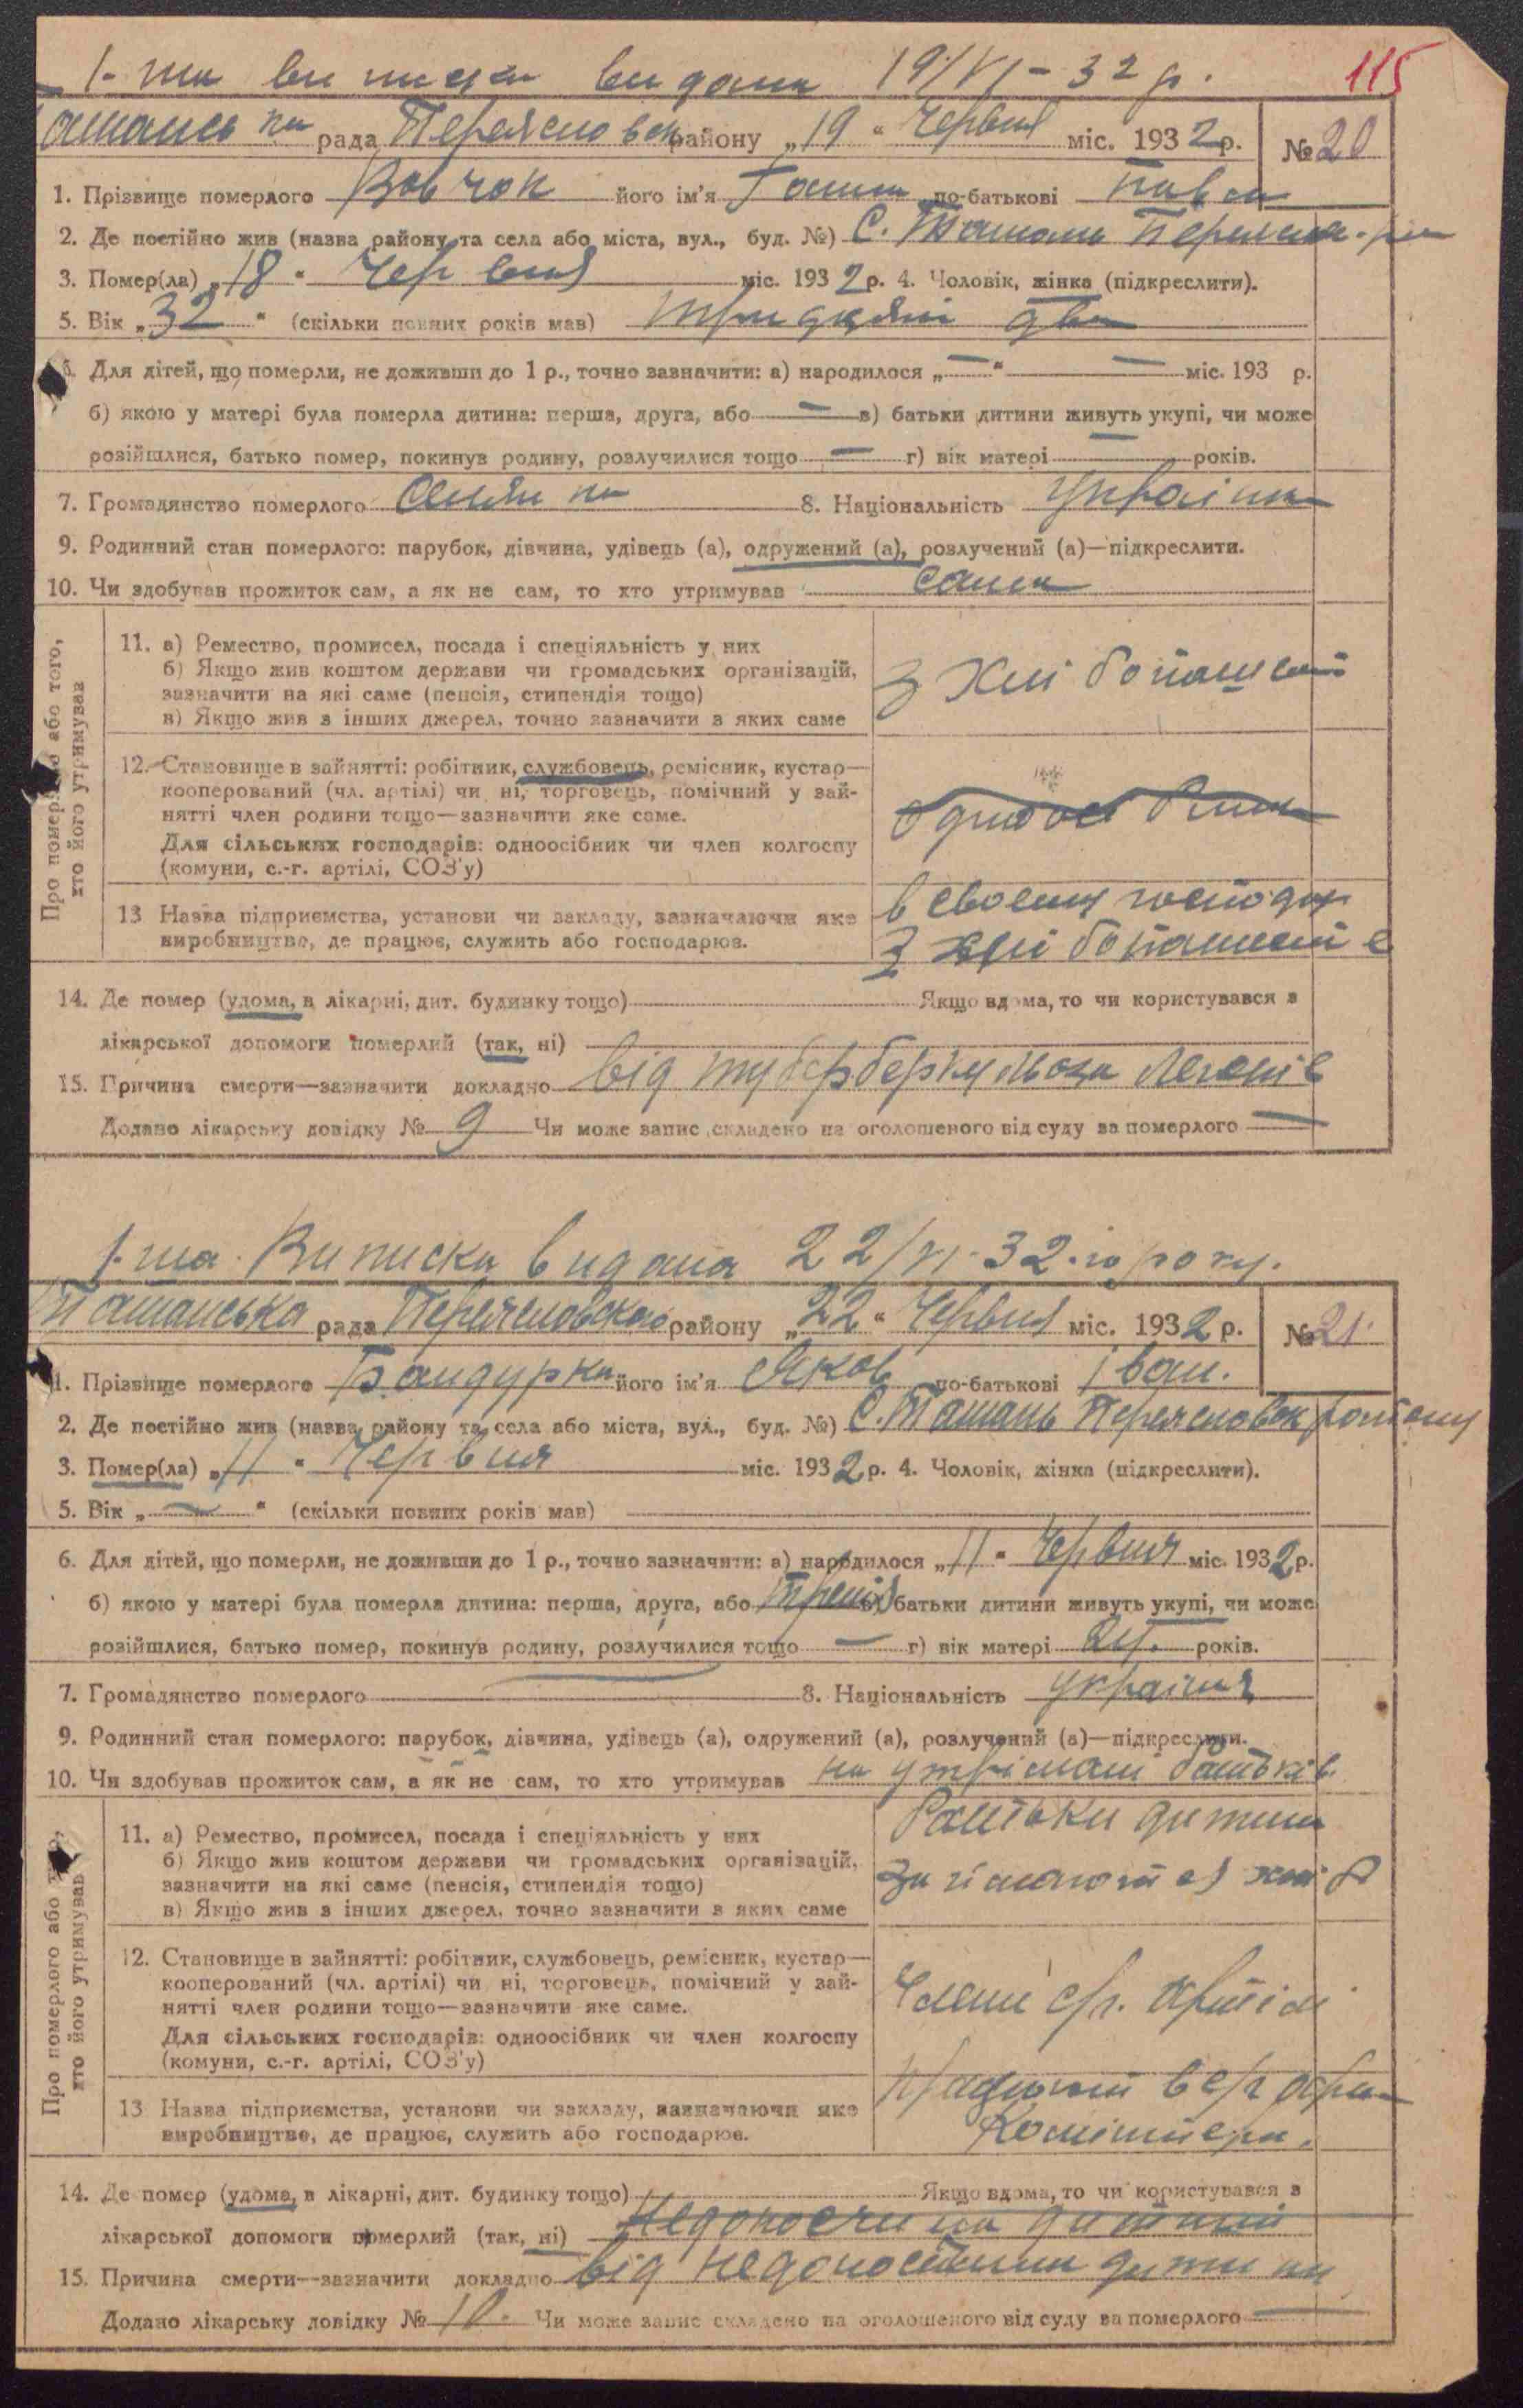 1-ша виписка видана 19/VI-32 р.
115
Ташанська рада Переясловськ району „19“ Червня міс. 1932 р. № 20
1. Прізвище померлого Вовчок його ім'я Ганна по-батькові Павл
2. Де постійно жив (назва району та села або міста, вул., буд. №) С. Ташань Переясл. р-н
3. Помер(ла) „18“ Червня міс. 1932 р. 4. Чоловік, жінка (підкреслити).
5. Вік „32“ (скільки повних років мав) тридцять два
6. Для дітей, що померли, не доживши до 1 р., точно зазначити: а) народилося „—“ — міс. 193 р.
б) якою у матері була померла дитина: перша, друга, або — в) батьки дитини живуть укупі, чи може
розійшлися, батько помер, покинув родину, розлучилися тощо — г) вік матері — років.
7. Громадянство померлого 8. Національність Україн
9. Родинний стан померлого: парубок, дівчина, удівець (а), одружений (а), розлучений (а)—підкреслити.
10. Чи здобував прожиток сам, а як не сам, то хто утримував сама
Про померлого або того, хто його утримував
11. а) Ремество, промисел, посада і спеціяльність у них
б) Якщо жив коштом держави чи громадських організацій, зазначити на які саме (пенсія, стипендія тощо)
в) Якщо жив з інших джерел, точно зазначити з яких саме
З хлібопашест
12. Становище в зайнятті: робітник, службовець, ремісник, кустар—
кооперований (чл. артілі) чи ні, торговець, помічний у зай-
нятті член родини тощо—зазначити яке саме.
Для сільських господарів: одноосібник чи член колгоспу
(комуни, с.-г. артілі, СОЗ'у)
13 Назва підприємства, установи чи закладу, зазначаючи яке
виробництво, де працює, служить або господарює.
в своєму господар
З хлібопашест
14. Де помер (удома, в лікарні, дит. будинку тощо) Якщо вдома, то чи користувався з
лікарської допомоги померлий (так, ні)
15. Причина смерти—зазначити докладно від туберберкульоза легенів
Додано лікарську довідку № 9 Чи може запис складено на оголошеного від суду за померлого —
1-ша Виписка видана 22/VI-32-го року.
Ташанська рада Переясловского району „22“ Червня міс. 1932 р. № 21
1. Прізвище померлого Бандурка його ім'я Яков по-батькові Іван.
2. Де постійно жив (назва району та села або міста, вул., буд. №) С. Ташань Переясловск району
3. Помер(ла) „11“ Червня міс. 1932 р. 4. Чоловік, жінка (підкреслити).
5. Вік „—“ (скільки повних років мав)
6. Для дітей, що померли, не доживши до 1 р., точно зазначити: а) народилося „11“ Червня міс. 1932 р.
б) якою у матері була померла дитина: перша, друга, або третя в) батьки дитини живуть укупі, чи може
розійшлися, батько помер, покинув родину, розлучилися тощо — г) вік матері років.
7. Громадянство померлого — 8. Національність
9. Родинний стан померлого: парубок, дівчина, удівець (а), одружений (а), розлучений (а)—підкреслити.
10. Чи здобував прожиток сам, а як не сам, то хто утримував на утрімані батьків
Про померлого або того, хто його утримував
11. а) Ремество, промисел, посада і спеціяльність у них
б) Якщо жив коштом держави чи громадських організацій,
зазначити на які саме (пенсія, стипендія тощо)
в) Якщо жив з інших джерел, точно зазначити з яких саме
Батьки дитини
12. Становище в зайнятті: робітник, службовець, ремісник, кустар—
кооперований (чл. артілі) чи ні, торговець, помічний у зай-
нятті член родини тощо—зазначити яке саме.
Для сільських господарів: одноосібник чи член колгоспу
(комуни, с.-г. артілі, СОЗ'у)
Члени с/г. артілі
13 Назва підприємства, установи чи закладу, зазначаючи яке
виробництво, де працює, служить або господарює.
в с/г
Комінтерн.
14. Де помер (удома, в лікарні, дит. будинку тощо) Якщо вдома, то чи користувався з
лікарської допомоги померлий (так, ні)
15. Причина смерти—зазначити докладно від недоностини дитини
Додано лікарську довідку № 10. Чи може запис складено на оголошеного від суду за померлого —